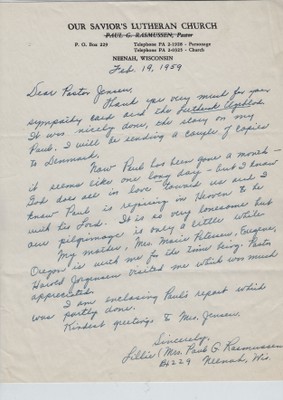 OUR SAVIOR'S LUTHERAN CHURCH
PAUL G. RASMUSSEN, Pastor
P. O. Box 229
Telephone PA 2-1258 - Parsonage
Telephone PA 2-0325 - Church
NEENAH, WISCONSIN
Feb. 19, 1959
Dear Pastor Jensen,
Thank you very much for your
sympathy card and the Lutheran
It was nicely done, the story on my
Paul. I will be sending a couple of copies
to Denmark.
Now Paul has been gone a month -
it seems like one long day - but I know
God does all in love toward us and I
know Paul is rejoicing in Heaven to be
with his Lord. It is so very lonesome but
our pilgrimage is only a little while.
My mother, Mrs. Marie Petersen, Eugene,
Oregon is with me for the time being. Pastor
Harold Jorgensen visited me which was much
appreciated.
I am enclosing Paul's report which
was partly done.
Kindest greetings to Mrs. Jensen.
Sincerely,
Lillie (Mrs. Paul G. Rasmussen
Bx 229 Neenah, Wis.